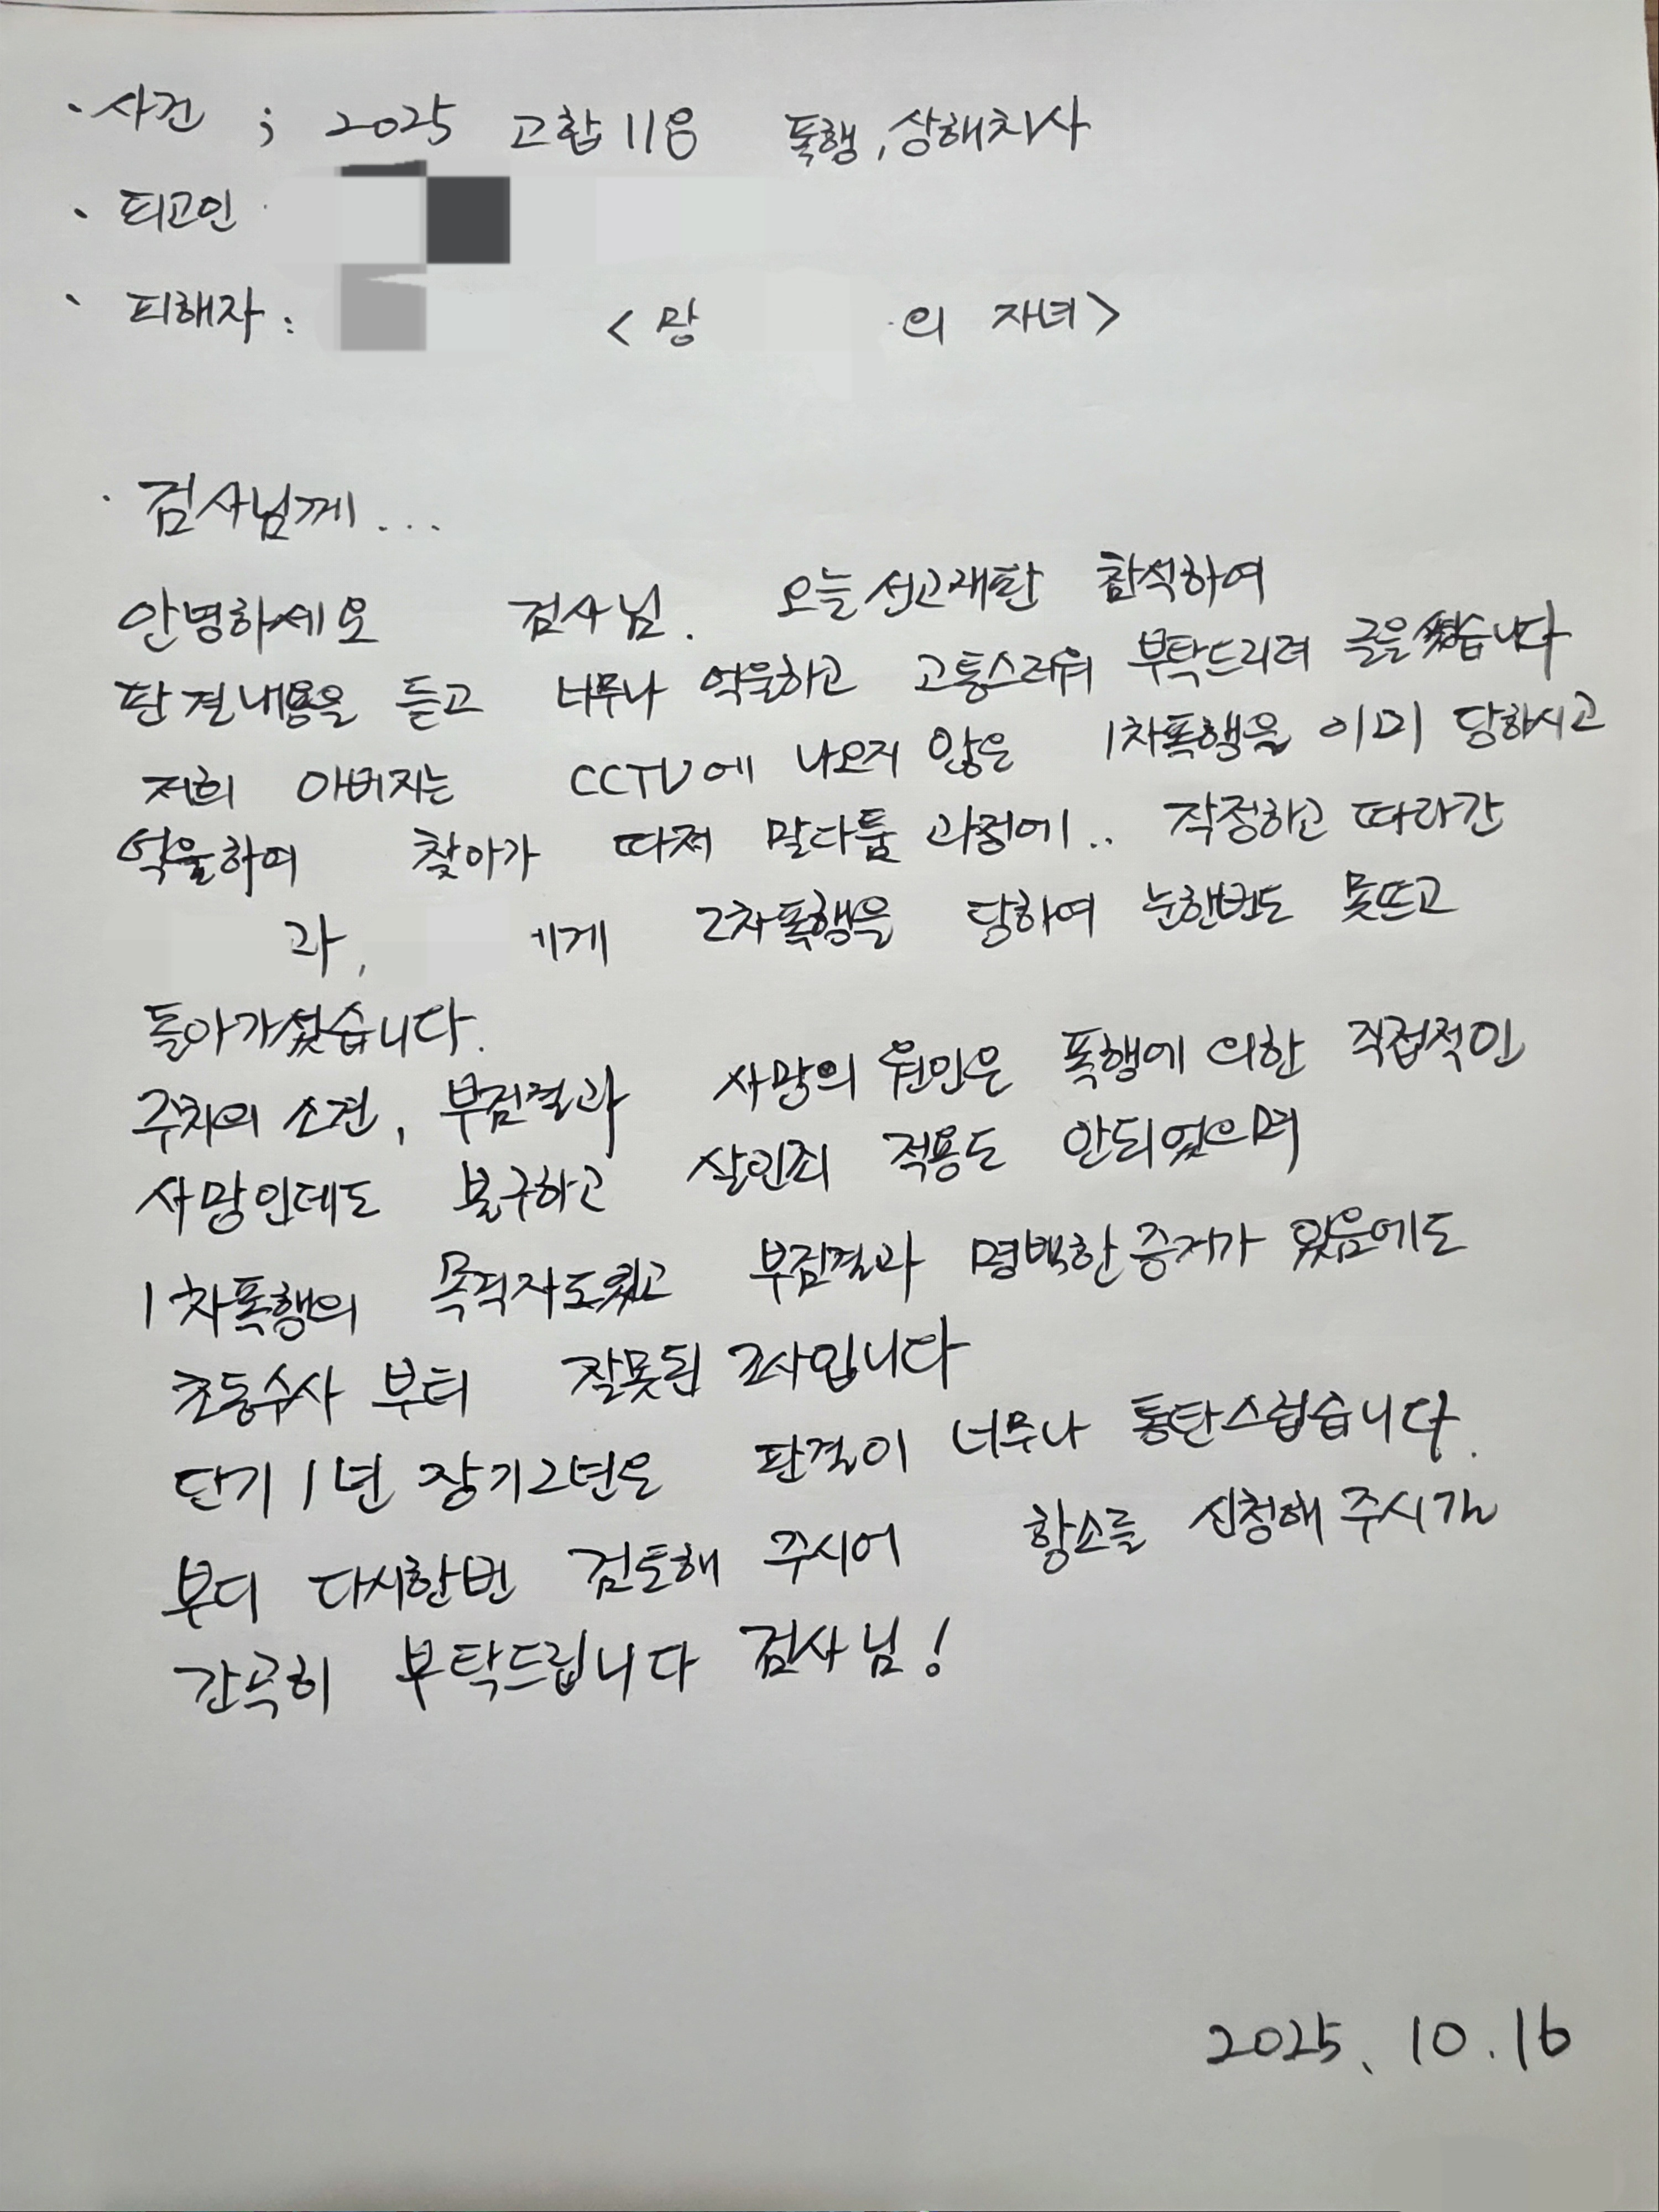 · 사건 ; 2025 고합 118 폭행, 상해치사
· 피고인
· 피해자 : < 망 의 자녀 >
· 검사님께...
안녕하세요 검사님. 오늘 선고재판 참석하여
판결내용을 듣고 너무나 억울하고 고통스러워 부탁드리려 글을 썼습니다
저희 아버지는 CCTV에 나오지 않은 1차폭행을 이미 당하시고
억울하여 찾아가 따져 말다툼 과정에.. 작정하고 따라간
과, 에게 2차폭행을 당하여 눈한번도 못뜨고
돌아가셨습니다.
주치의 소견, 부검결과 사망의 원인은 폭행에 의한 직접적인
사망인데도 불구하고 살인죄 적용도 안되었으며
1차폭행의 목격자도 있고 부검결과 명백한 증거가 있음에도
초동수사 부터 잘못된 조사입니다
단기 1년 장기2년은 판결이 너무나 통탄스럽습니다.
부디 다시한번 검토해 주시어 항소를 신청해 주시길
간곡히 부탁드립니다 검사님!
2025. 10. 16